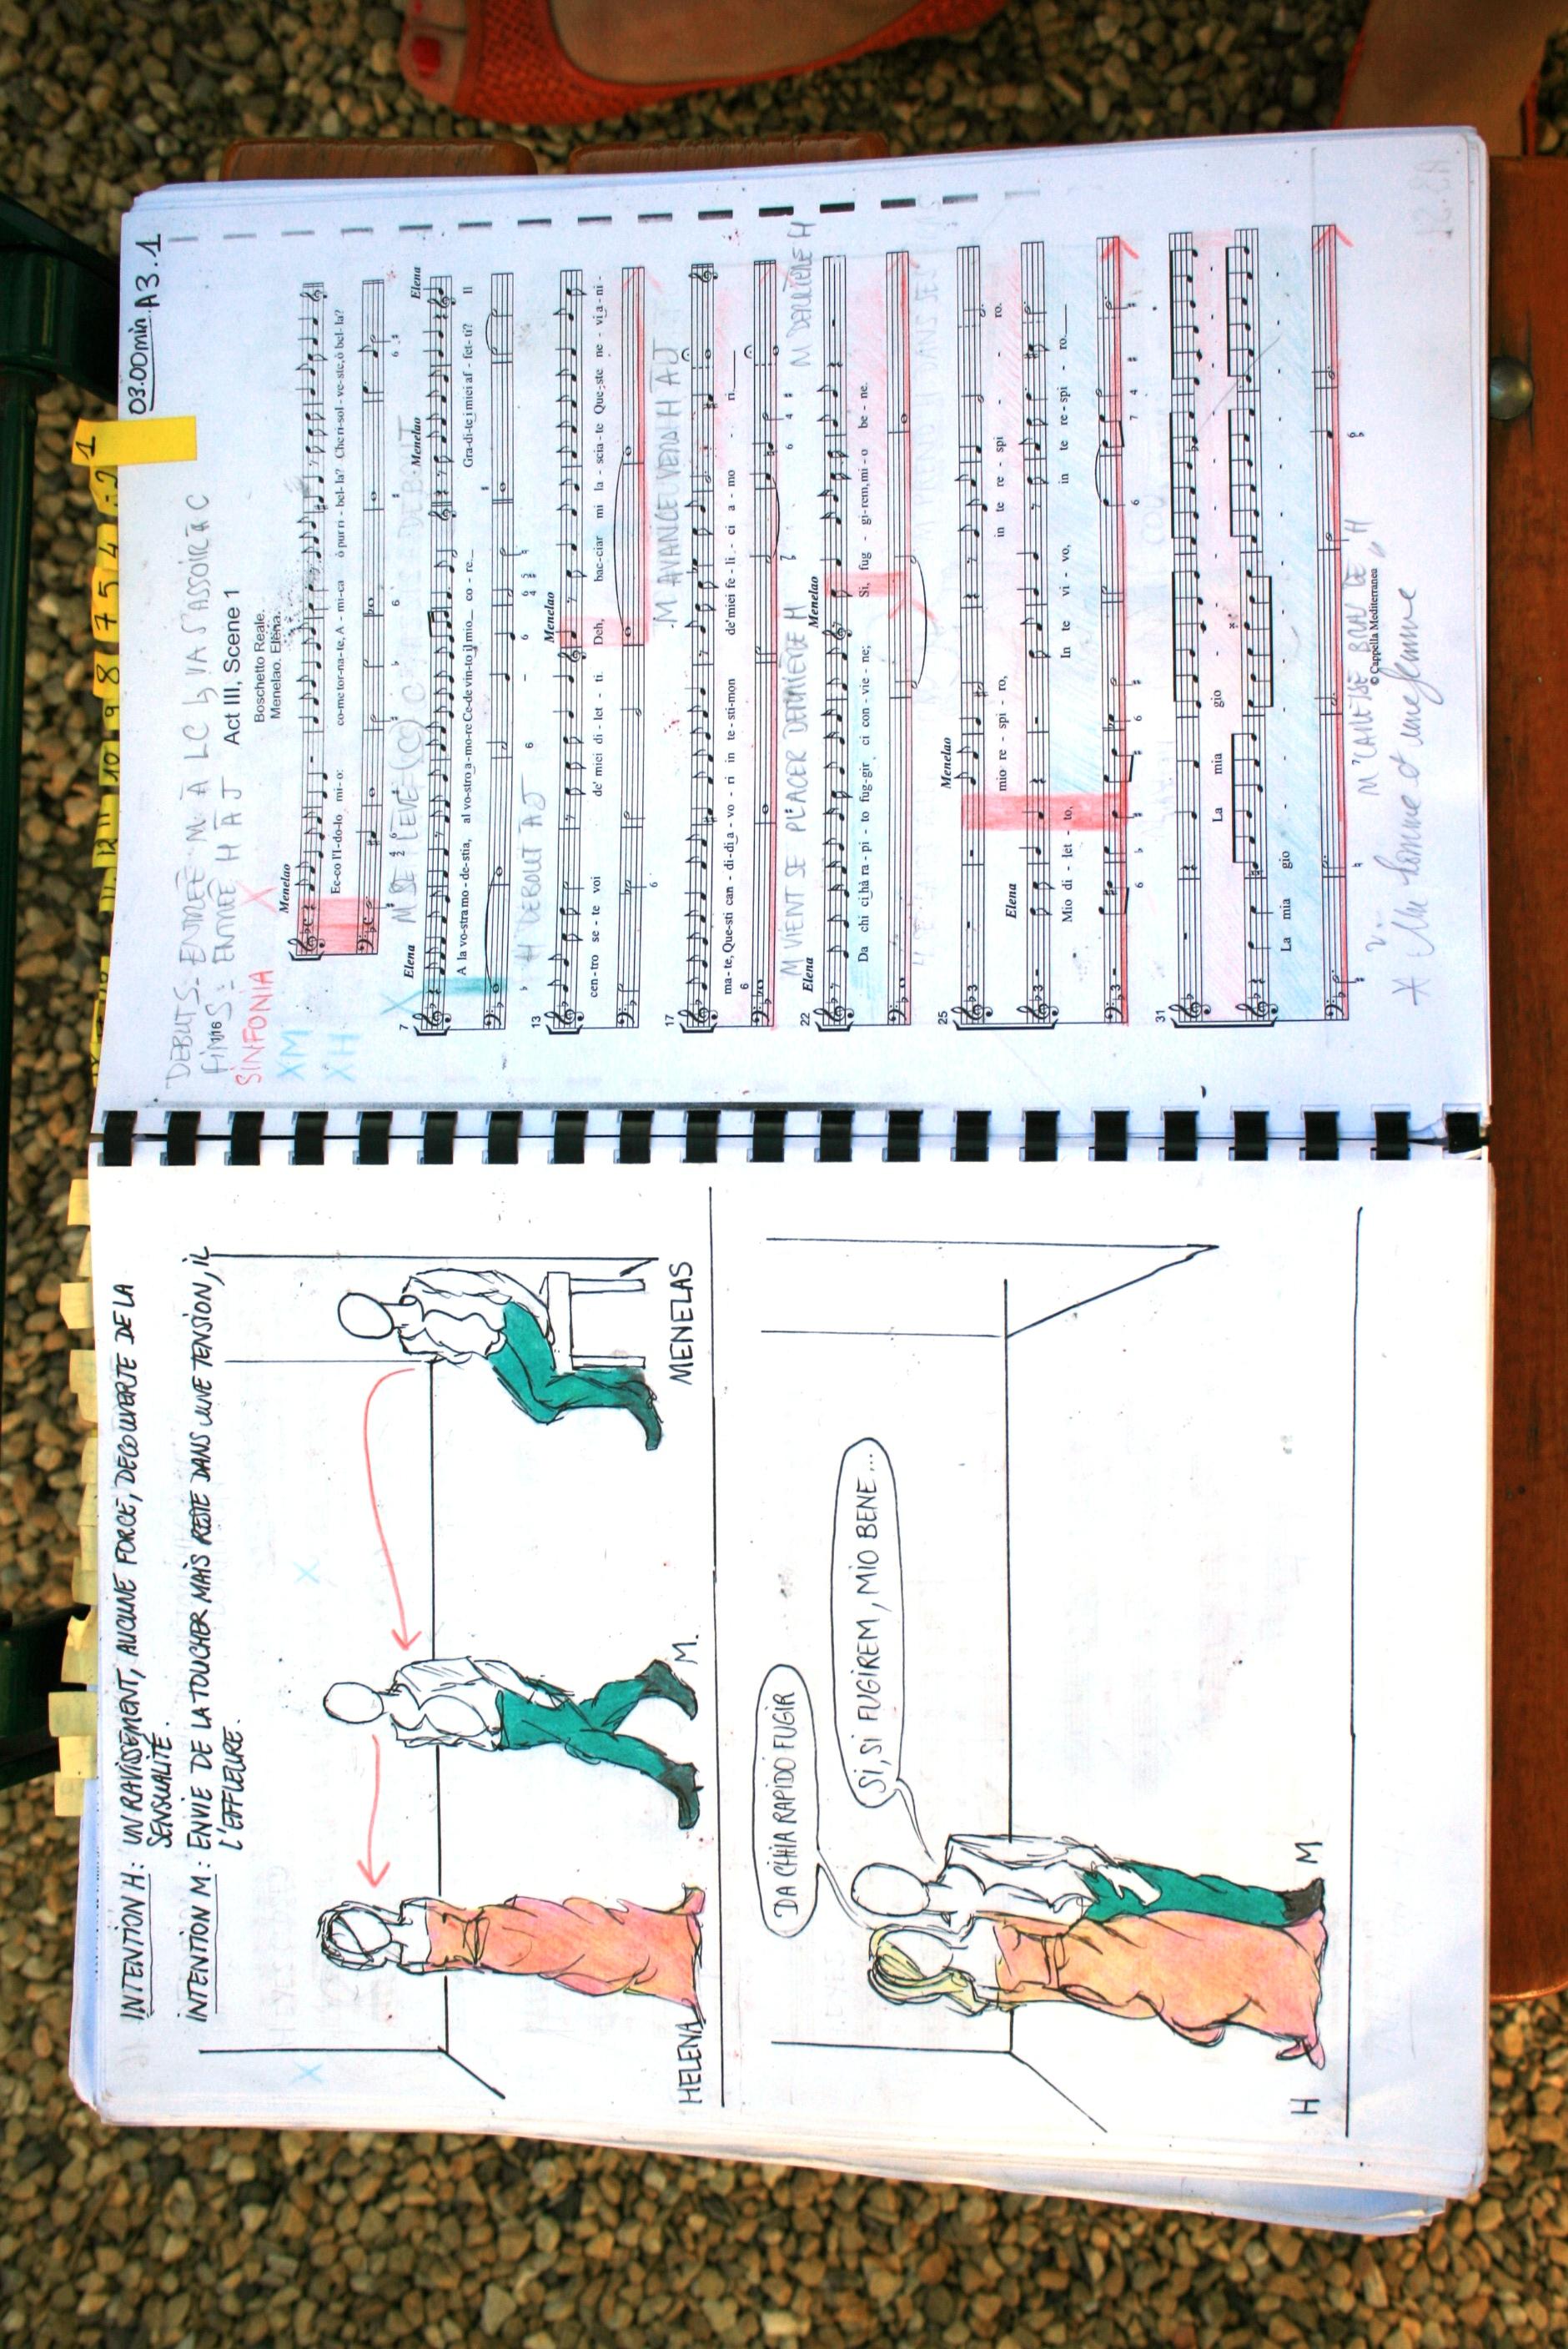 INTENTION H : UN RAVISSEMENT, AUCUNE FORCE, DECOUVERTE DE LA
SENSUALITÉ.
INTENTION M : ENVIE DE LA TOUCHER MAIS RESTE DANS UNE TENSION, IL
L'EFFLEURE.
HELENA
M.
MENELAS
DA CHI HA RAPIDO FUGIR
SI, SI FUGIREM, MIO BENE...
H
M
03.00min A3.1
1
2
4
5
7
8
9
10
11
12
DEBUT S - ENTRÉE M À LC VA S'ASSOIR À C
FIN S : ENTRÉE H À J
Act III, Scene 1
SINFONIA X
Boschetto Reale.
XM
Menelao. Elena.
XH
Menelao
Ec-co l'I-do-lo mi-o: co-me tor-na-te, A-mi-ca ò pur ri-bel-la? Che ri-sol-ve-ste, ò bel-la?
M SE LEVE (C)
7
Elena
Menelao
Elena
A la vo-stra mo-de-stia, al vo-stro a-mo-re Ce-de vin-to il mio co-re. Gra-di-te i miei af-fet-ti? Il
H DEBOUT À J
13
Menelao
cen-tro se-te voi de' miei di-let-ti. Deh, bac-ciar mi la-scia-te Que-ste ne-vi a-ni-
M AVANCE VERS H À J
17
ma-te, Que-sti can-di-di a-vo-ri in te-sti-mon de' miei fe-li-ci a-mo-ri.
M VIENT SE PLACER DERRIÈRE H
M DERRIÈRE H
22
Elena
Menelao
Da chi ci hà ra-pi-to fug-gir ci con-vie-ne; Si, fug-gi-rem, mi-o be-ne.
25
Menelao
mio re-spi-ro, in te re-spi-ro.
Elena
Mio di-let-to, In te vi-vo, in te re-spi-ro.
31
La mia gio-
La mia gio-
M CARESSE BRAS DE H
© Cappella Mediterranea
* Un homme et une femme